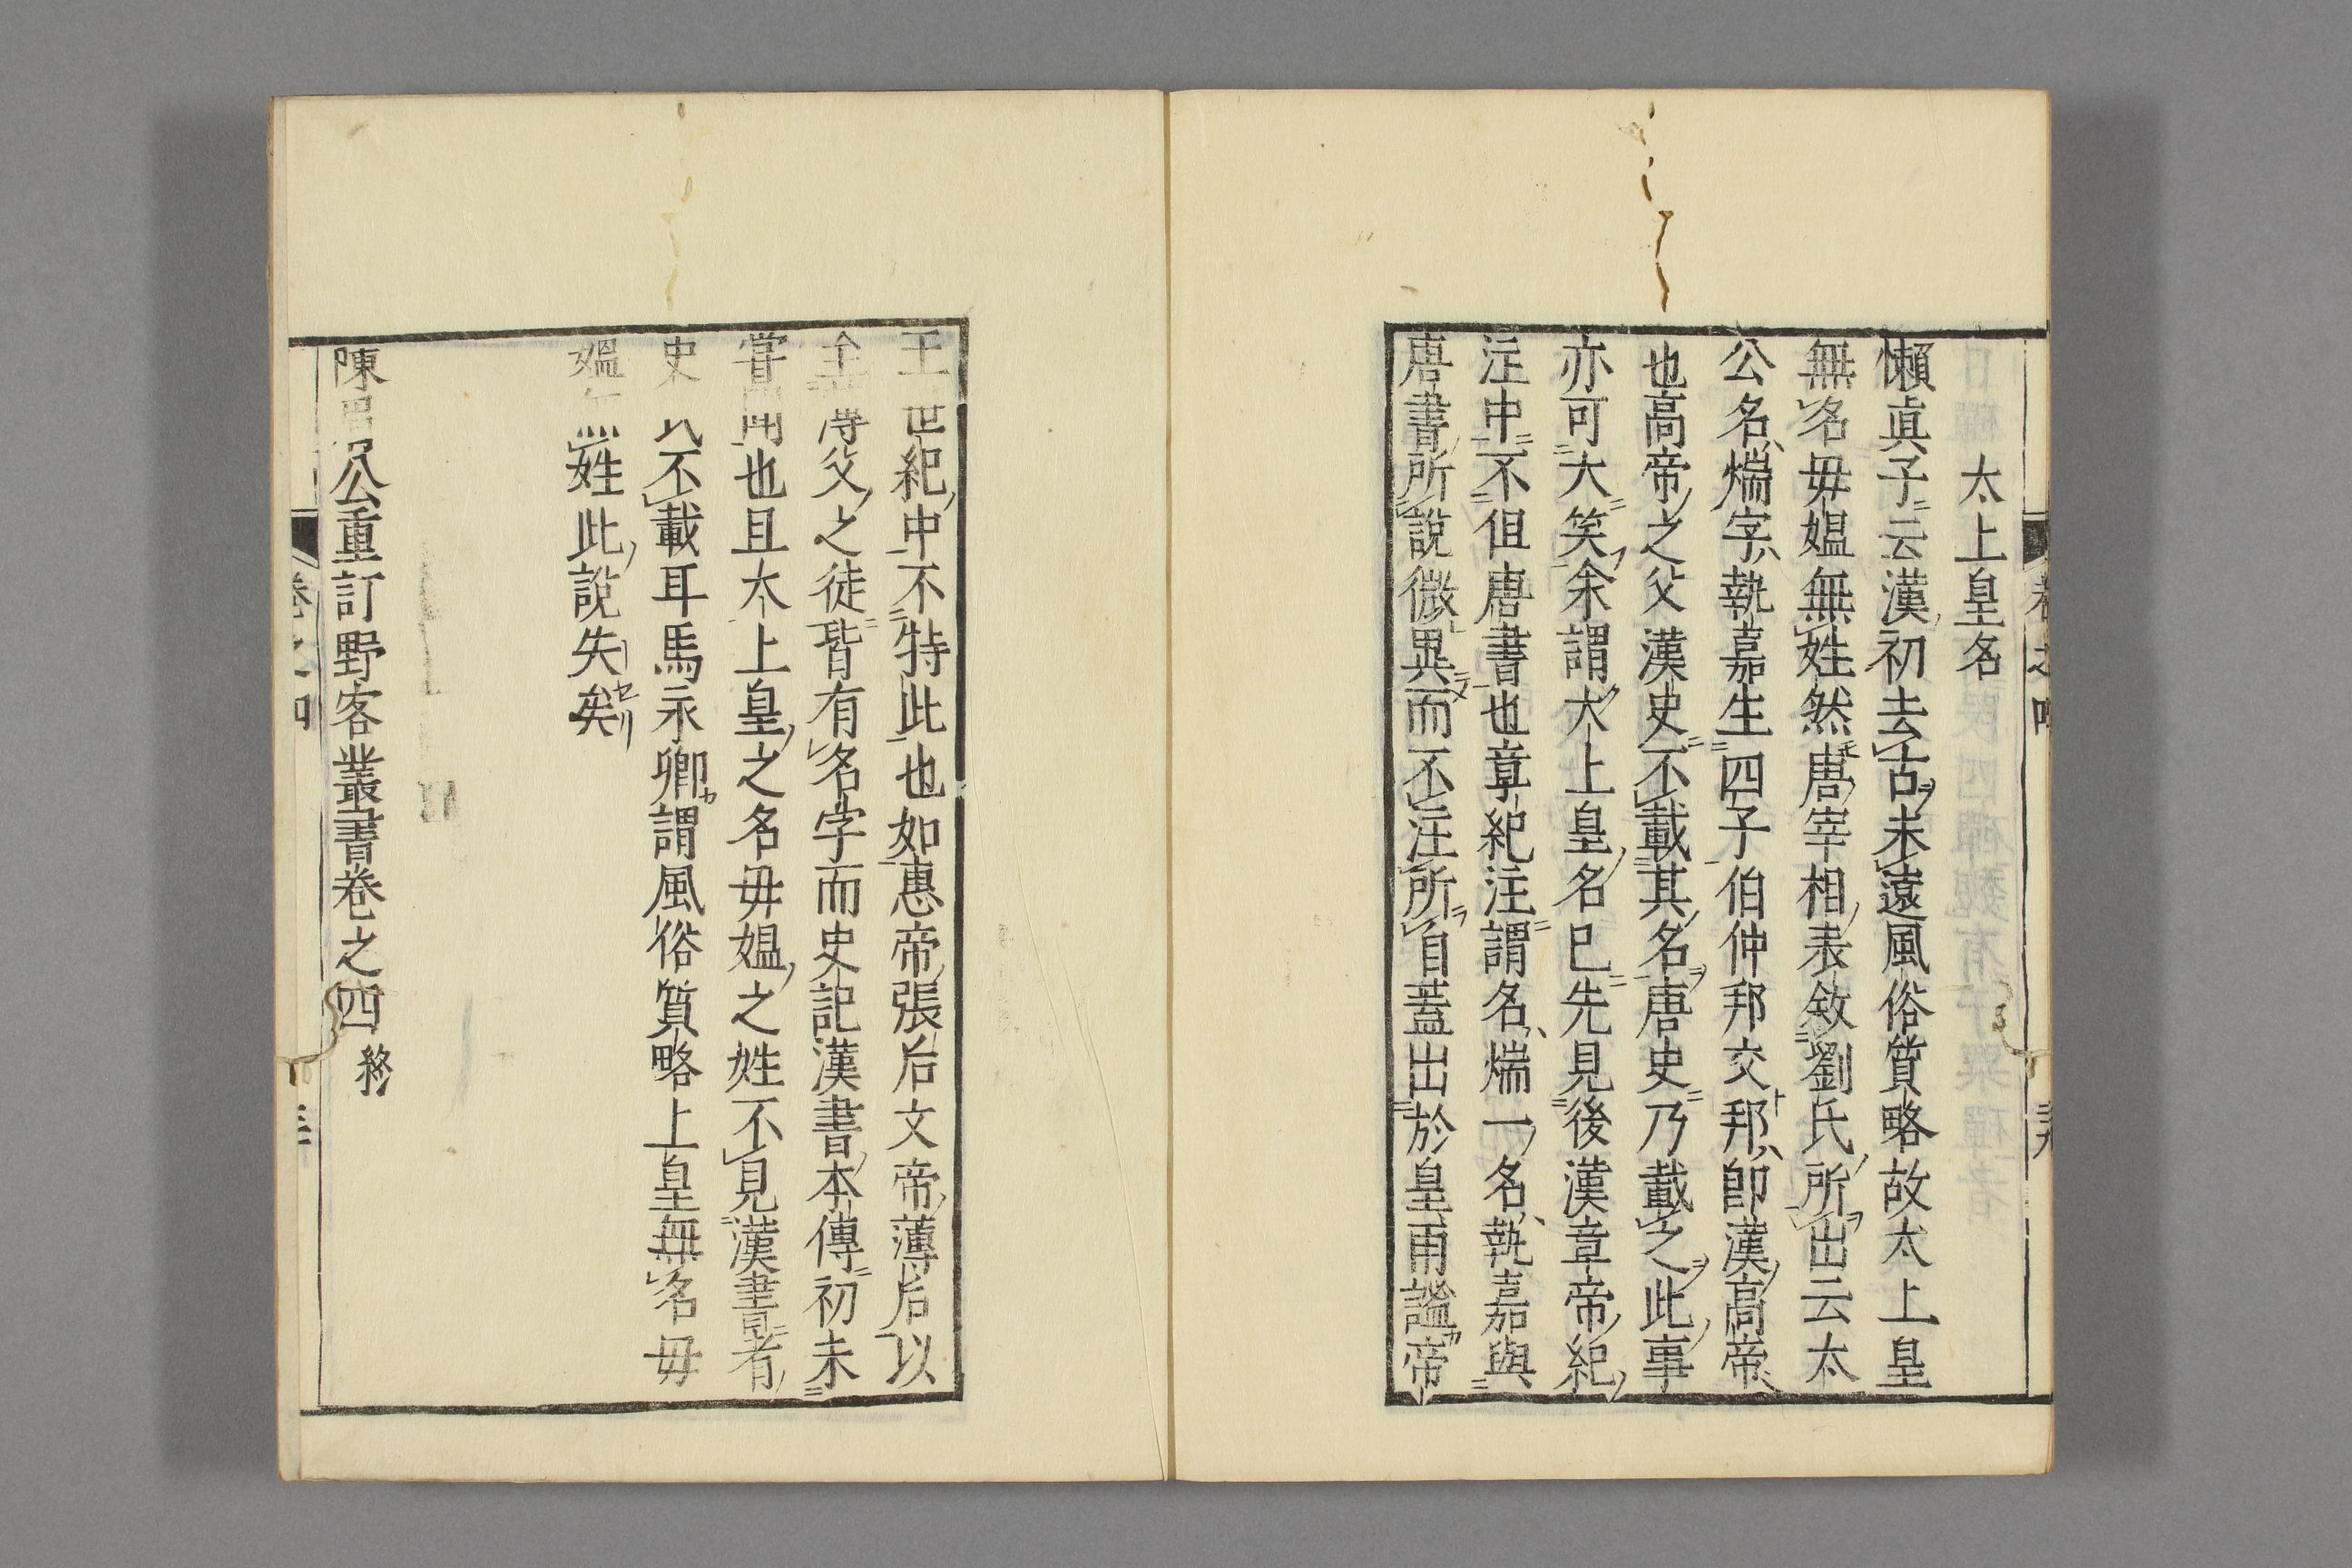 太上皇名
懶眞子云漢初去古未遠風俗質略故太上皇
無名毋媼無姓然唐宰相表敘劉氏所出云太
公名煓字執嘉生四子伯仲邦交邦卽漢高帝
也高帝之父漢史不載其名唐史乃載之此事
亦可大笑余謂太上皇名已先見後漢章帝紀
注中不但唐書也章紀注謂名煓一名執嘉與
唐書所說微異而不注所自蓋出於皇甫謐帝
王世紀中不特此也如惠帝張后文帝薄后以
至薄父之徒皆有名字而史記漢書本傳初未
嘗聞也且太上皇之名毋媼之姓不見漢書者
史 不載耳馬永卿謂風俗質略上皇無名毋
媼無姓此說失矣
陳眉公重訂野客叢書卷之四 終
卷之四